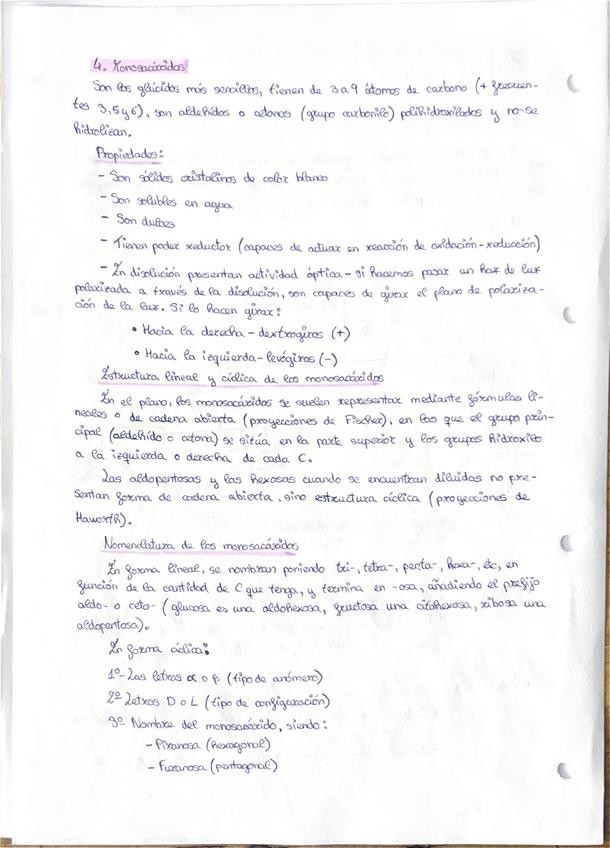 4. Monosacáridos
Son los glúcidos más sencillos, tienen de 3 a 9 átomos de carbono (+ frecuen-
tes 3, 5 y 6), son aldehídos o cetonas (grupo carbonilo) polihidroxilados y no se
hidrolizan.
Propiedades:
- Son sólidos cristalinos de color blanco
- Son solubles en agua
- Son dulces
- Tienen poder reductor (capaces de actuar en reacción de oxidación-reducción)
- En disolución presentan actividad óptica - si hacemos pasar un haz de luz
polarizada a través de la disolución, son capaces de girar el plano de polariza-
ción de la luz. Si lo hacen girar:
• Hacia la derecha - dextrogiros (+)
• Hacia la izquierda - levógiros (-)
Estructura lineal y cíclica de los monosacáridos
En el plano, los monosacáridos se suelen representar mediante fórmulas li-
neales o de cadena abierta (proyecciones de Fischer), en las que el grupo prin-
cipal (aldehído o cetona) se sitúa en la parte superior y los grupos hidroxilo
a la izquierda o derecha de cada C.
Las aldopentosas y las hexosas cuando se encuentran diluidas no pre-
sentan forma de cadena abierta, sino estructura cíclica (proyecciones de
Haworth).
Nomenclatura de los monosacáridos
En forma lineal, se nombran poniendo tri-, tetra-, penta-, hexa-, etc, en
función de la cantidad de C que tenga, y termina en -osa, añadiendo el prefijo
aldo- o ceto- (glucosa es una aldohexosa, fructosa una citohexosa, ribosa una
aldopentosa).
En forma cíclica:
1º- Las letras α o β (tipo de anómero)
2º- Letras D o L (tipo de configuración)
3º- Nombre del monosacárido, siendo:
- Piranosa (hexagonal)
- Furanosa (pentagonal)